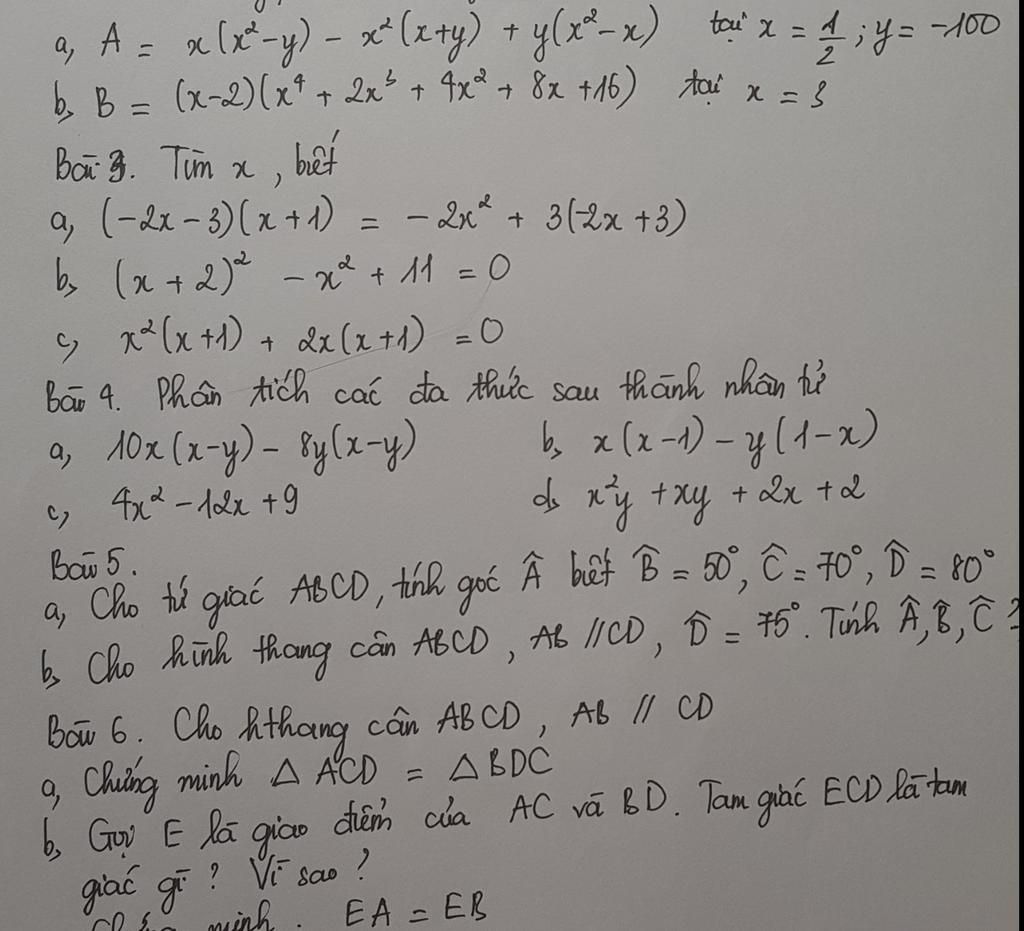 a, A = x(x² - y) - x²(x+y) + y(x² - x) tại x = 1/2 ; y = -100
b, B = (x-2)(x⁴ + 2x³ + 4x² + 8x + 16) tại x = 3
Bài 3. Tìm x, biết
a, (-2x - 3)(x + 1) = -2x² + 3(-2x + 3)
b, (x + 2)² - x² + 11 = 0
c, x²(x+1) + 2x(x+1) = 0
Bài 4. Phân tích các đa thức sau thành nhân tử
a, 10x(x-y) - 8y(x-y) b, x(x-1) - y(1-x)
c, 4x² - 12x + 9 d, x²y + xy + 2x + 2
Bài 5.
a, Cho tứ giác ABCD, tính góc Â biết B̂ = 50°, Ĉ = 70°, D̂ = 80°
b, Cho hình thang cân ABCD, AB // CD, D̂ = 75°. Tính Â, B̂, Ĉ ?
Bài 6. Cho hthang cân ABCD, AB // CD
a, Chứng minh △ ACD = △ BDC
b, Gọi E là giao điểm của AC và BD. Tam giác ECD là tam
giác gì ? Vì sao ?
minh. EA = EB